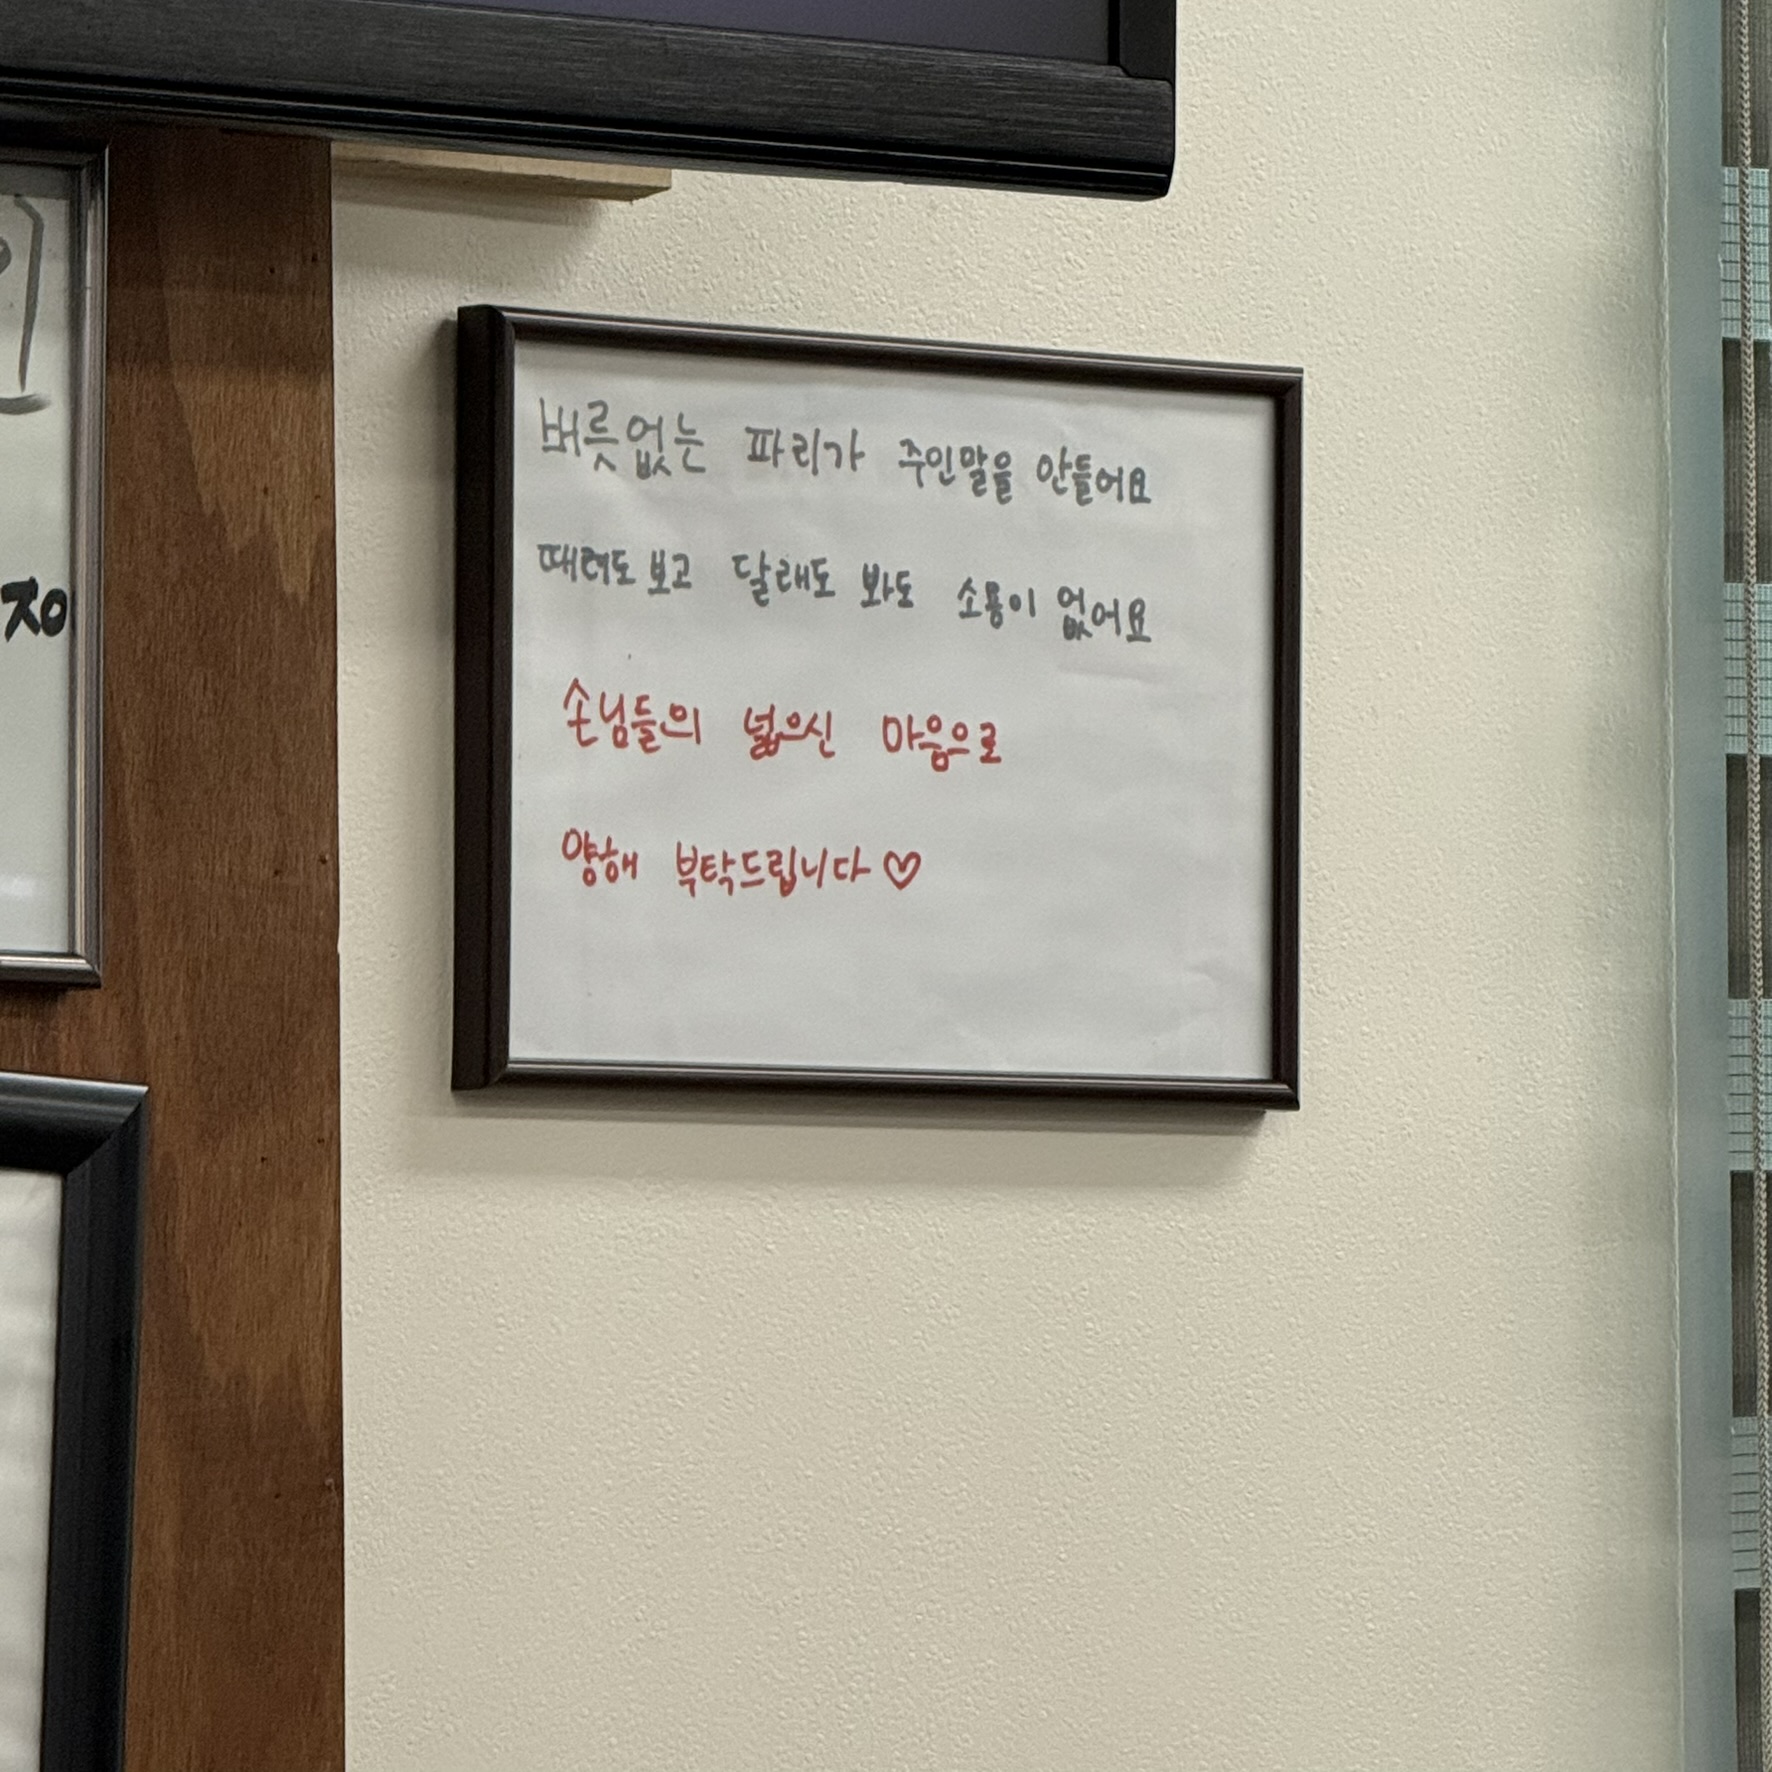 버릇없는 파리가 주인말을 안들어요
때려도 보고 달래도 봐도 소용이 없어요
손님들의 넓으신 마음으로
양해 부탁드립니다♡